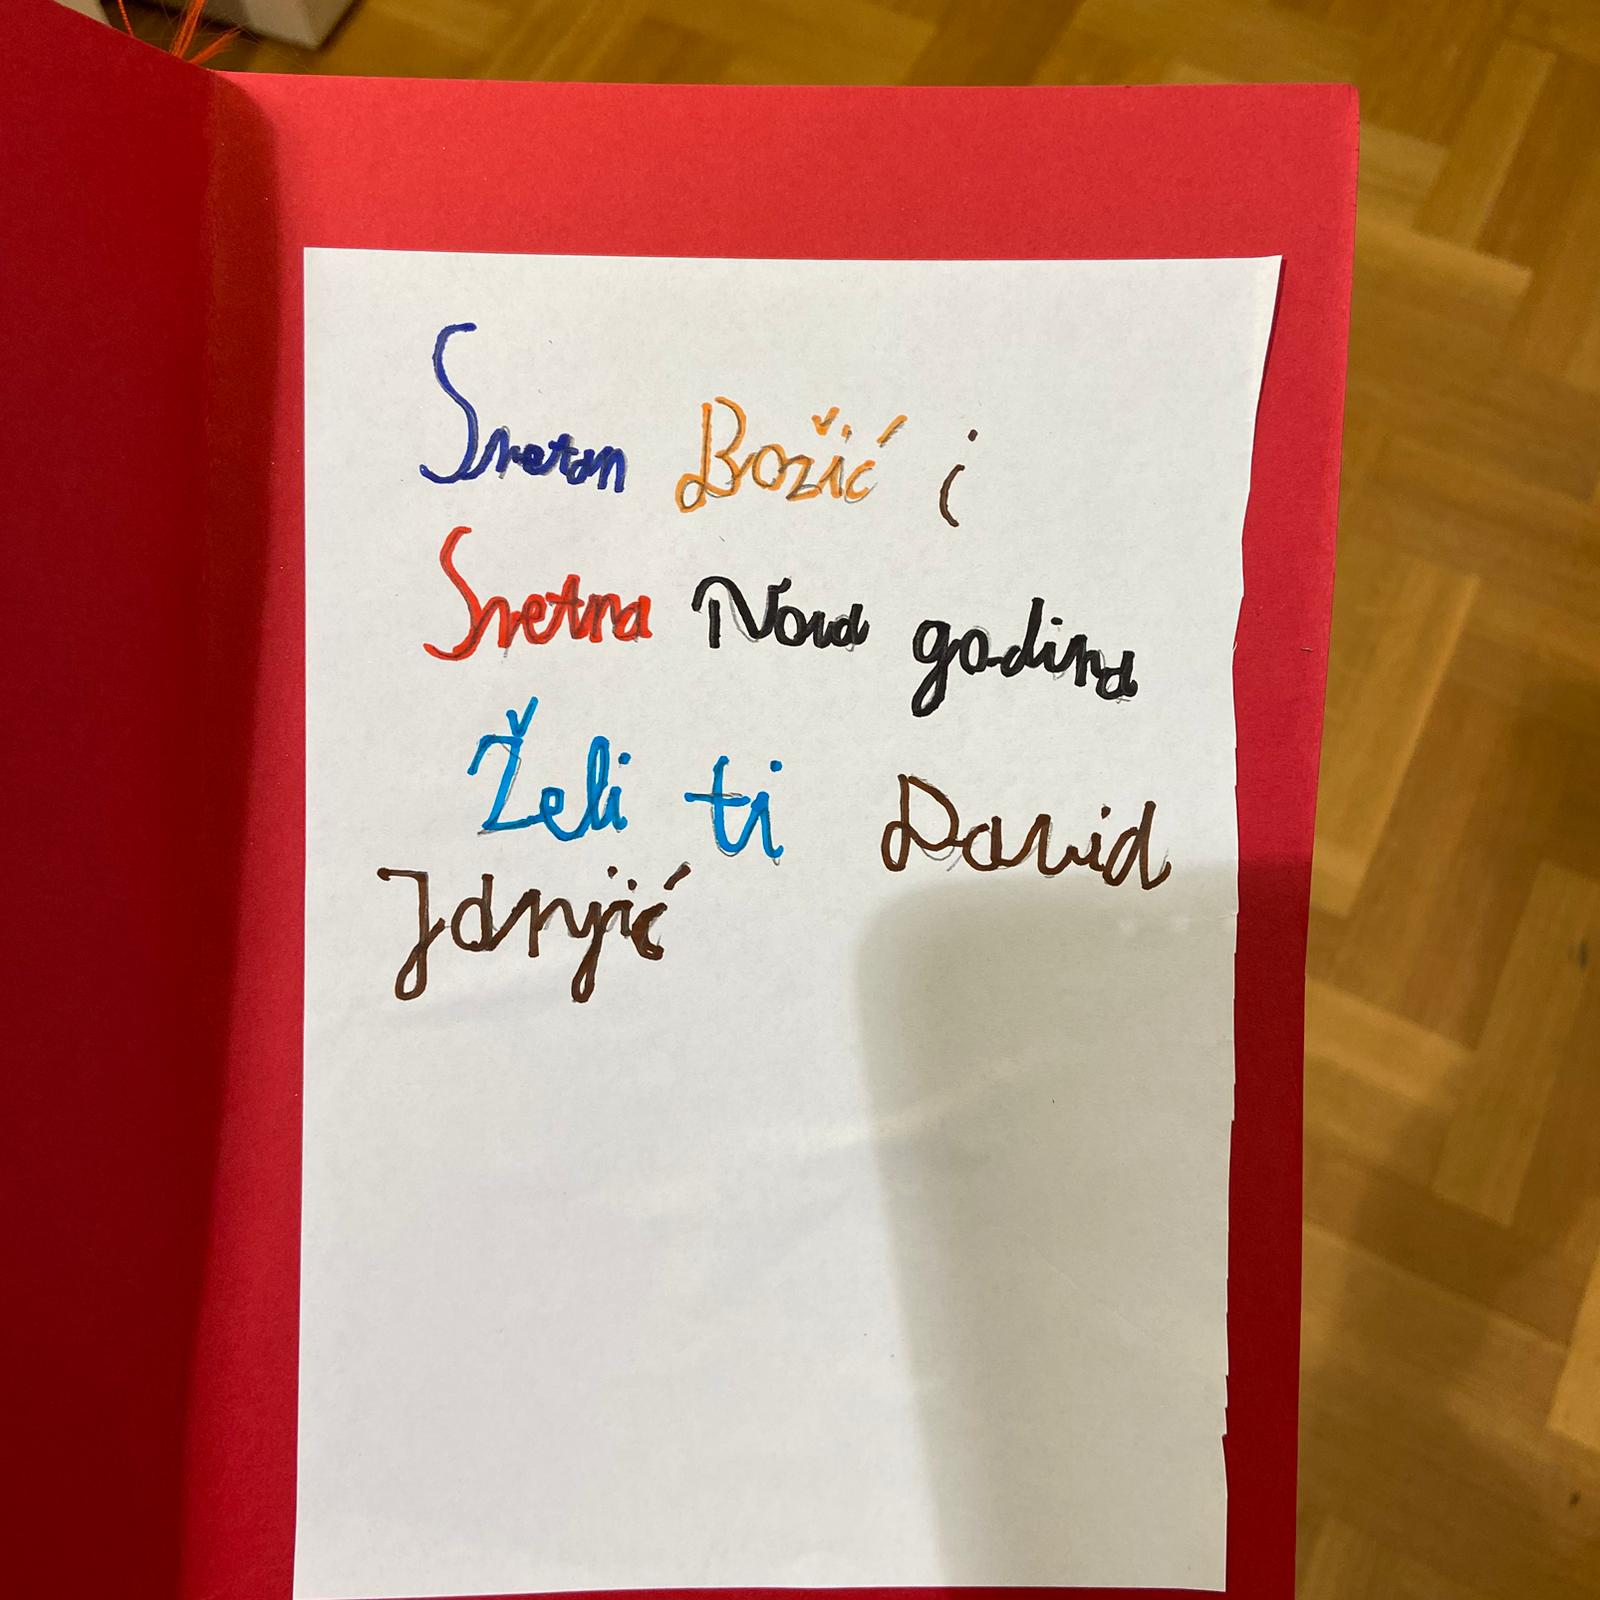 Sretan Božić i
Sretna Nova godina
Želi ti David
Janjić